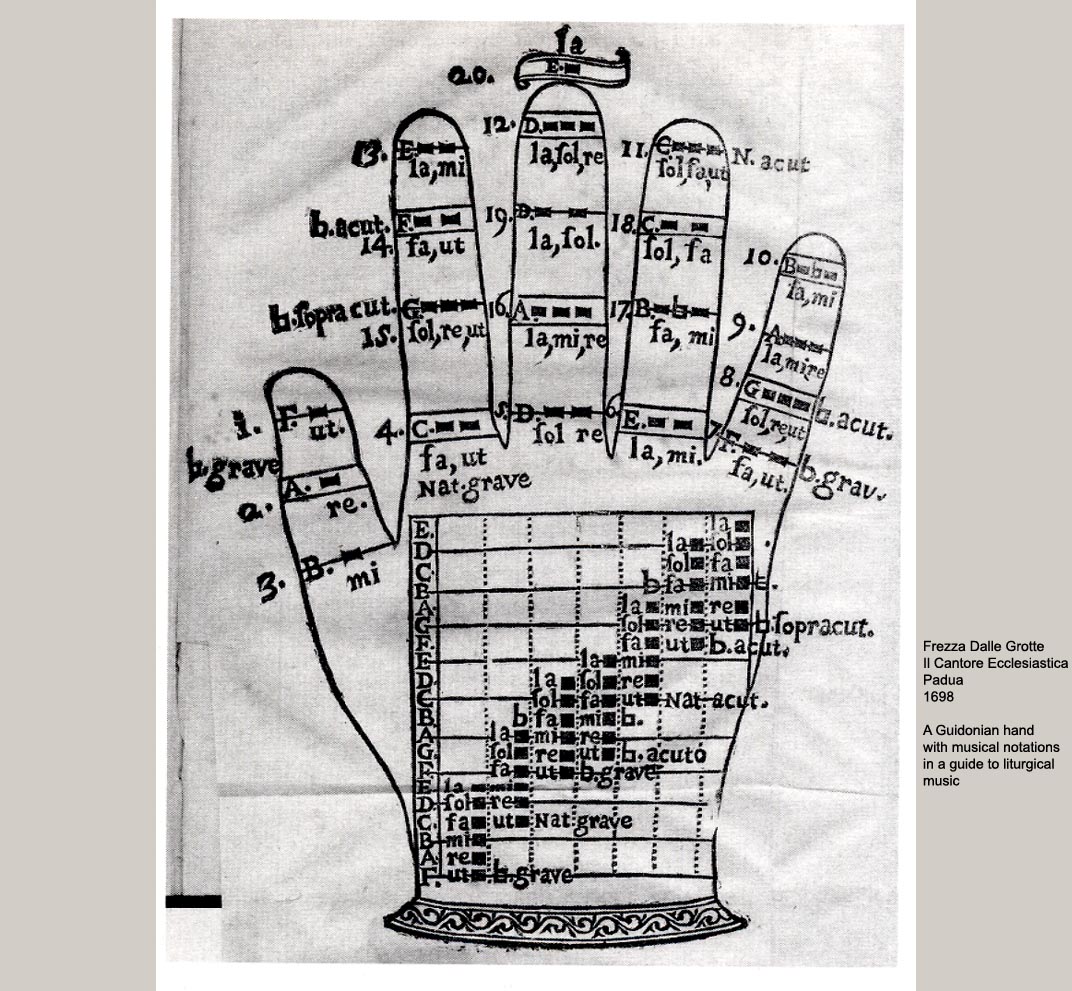 la
20. E.
12. D.
la, sol, re
13. E.
la, mi
11. C
sol, fa, ut
N. acut
b. acut.
14. F.
fa, ut
19. D.
la, sol.
18. C.
sol, fa
10. B b
fa, mi
b. sopra cut.
15. G
sol, re, ut
16. A
la, mi, re
17. B b
fa, mi
9. A
la, mi re
8. G
sol, re ut
b. acut.
1. Γ.
ut.
4. C.
fa, ut
Nat. grave
5. D.
sol re
6. E.
la, mi.
7. F.
fa, ut.
b. grav.
b. grave
2. A.
re.
3. B.
mi
E. la
D la sol
C sol fa
B b fa mi
A la mi re
G sol re ut b sopracut.
F fa ut b. acut.
E la mi
D la sol re
C sol fa ut Nat. acut.
B b fa mi b.
A la mi re
G. sol re ut b. acuto
F fa ut b. grave
E la mi
D sol re
C. fa ut Nat. grave
B mi
A re
Γ. ut b. grave
Frezza Dalle Grotte
Il Cantore Ecclesiastica
Padua
1698
A Guidonian hand
with musical notations
in a guide to liturgical
music